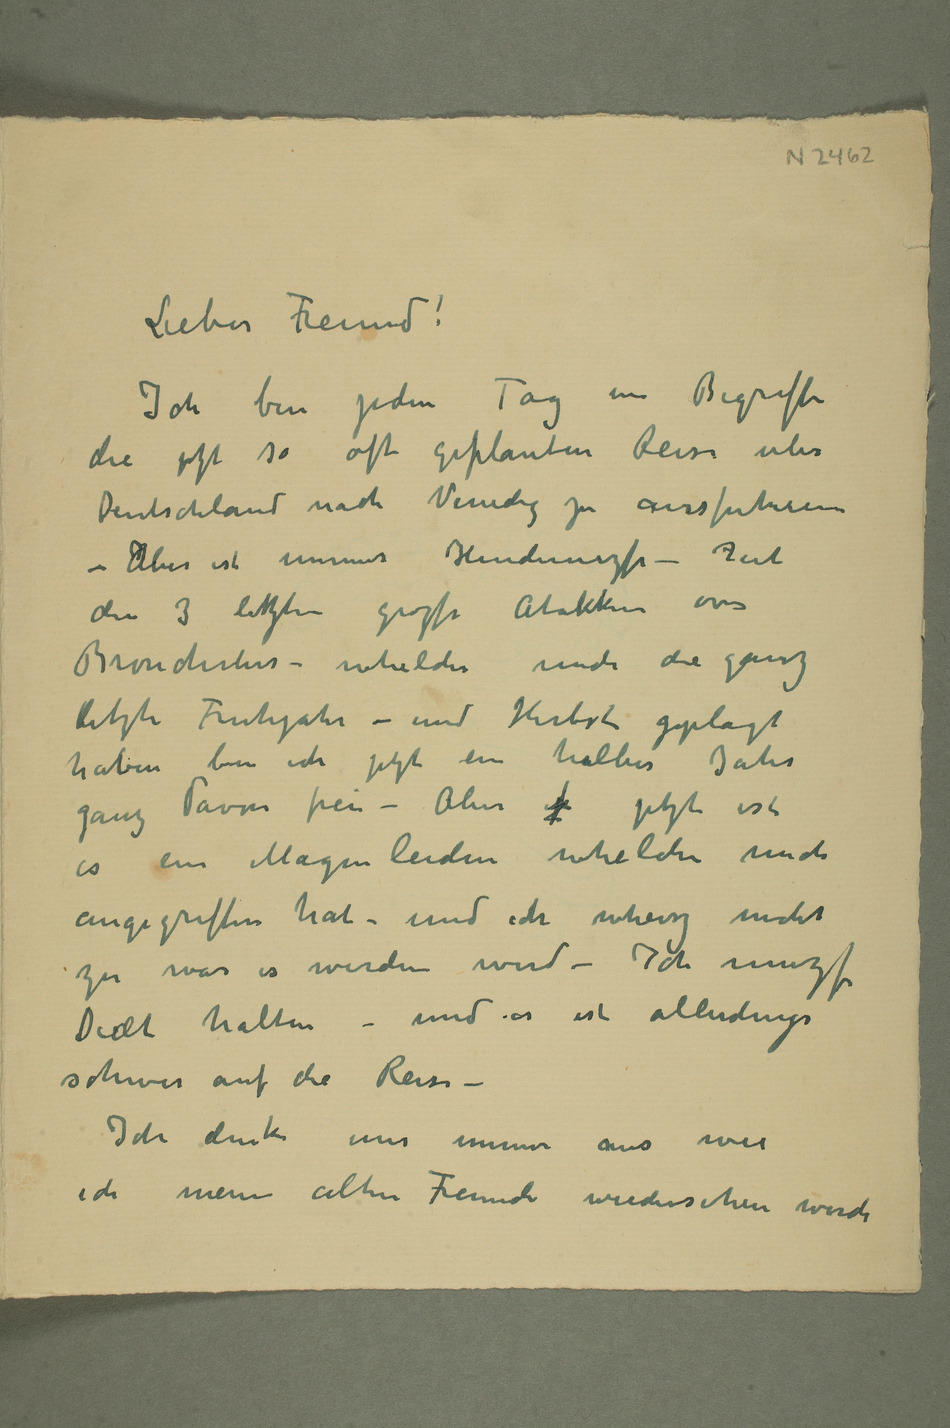 N 2462
Lieber Freund!
Ich bin jeden Tag im Begriffe
die jezt so oft geplanten Reise über
Deutschland nach Venedig zu ausfuhren
– Aber ist immer Hindernizse – Zeit
den 3 letzten grozse Atakken von
Bronchites – whelche mich die ganz
letzte Fruhjahr – und Herbst geplagt
haben bin ich jezt ein halbes Jahr
ganz davon frei – Aber jetzt ist
es ein Magenleiden whelche mich
angegriffen hat – und ich wheisz nicht
zu was es werden wird – Ich muzs
Diæt halten – und es ist allerdings
schwer auf die Reise –
Ich denke mir immer aus wie
ich meine alten Freunde wiedersehen werde